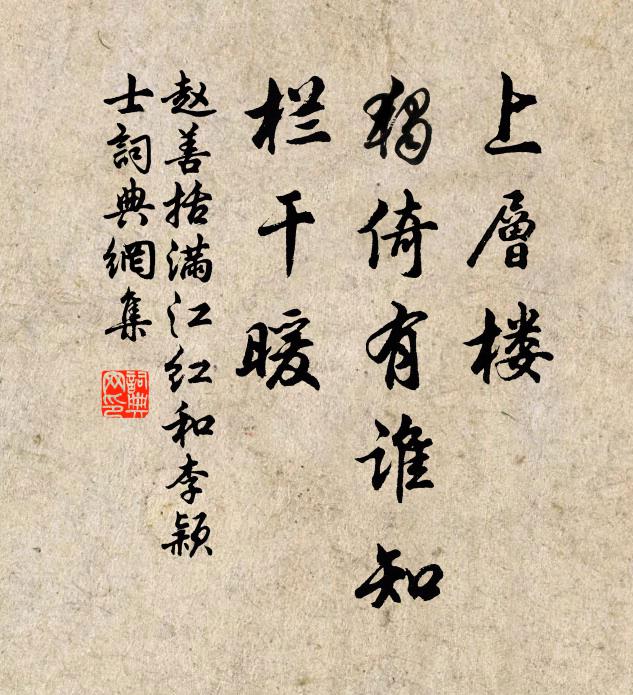 上層楼
獨倚有誰知
栏干暖
赵善括满江红和李颖
士詞典網集
詞典
网印